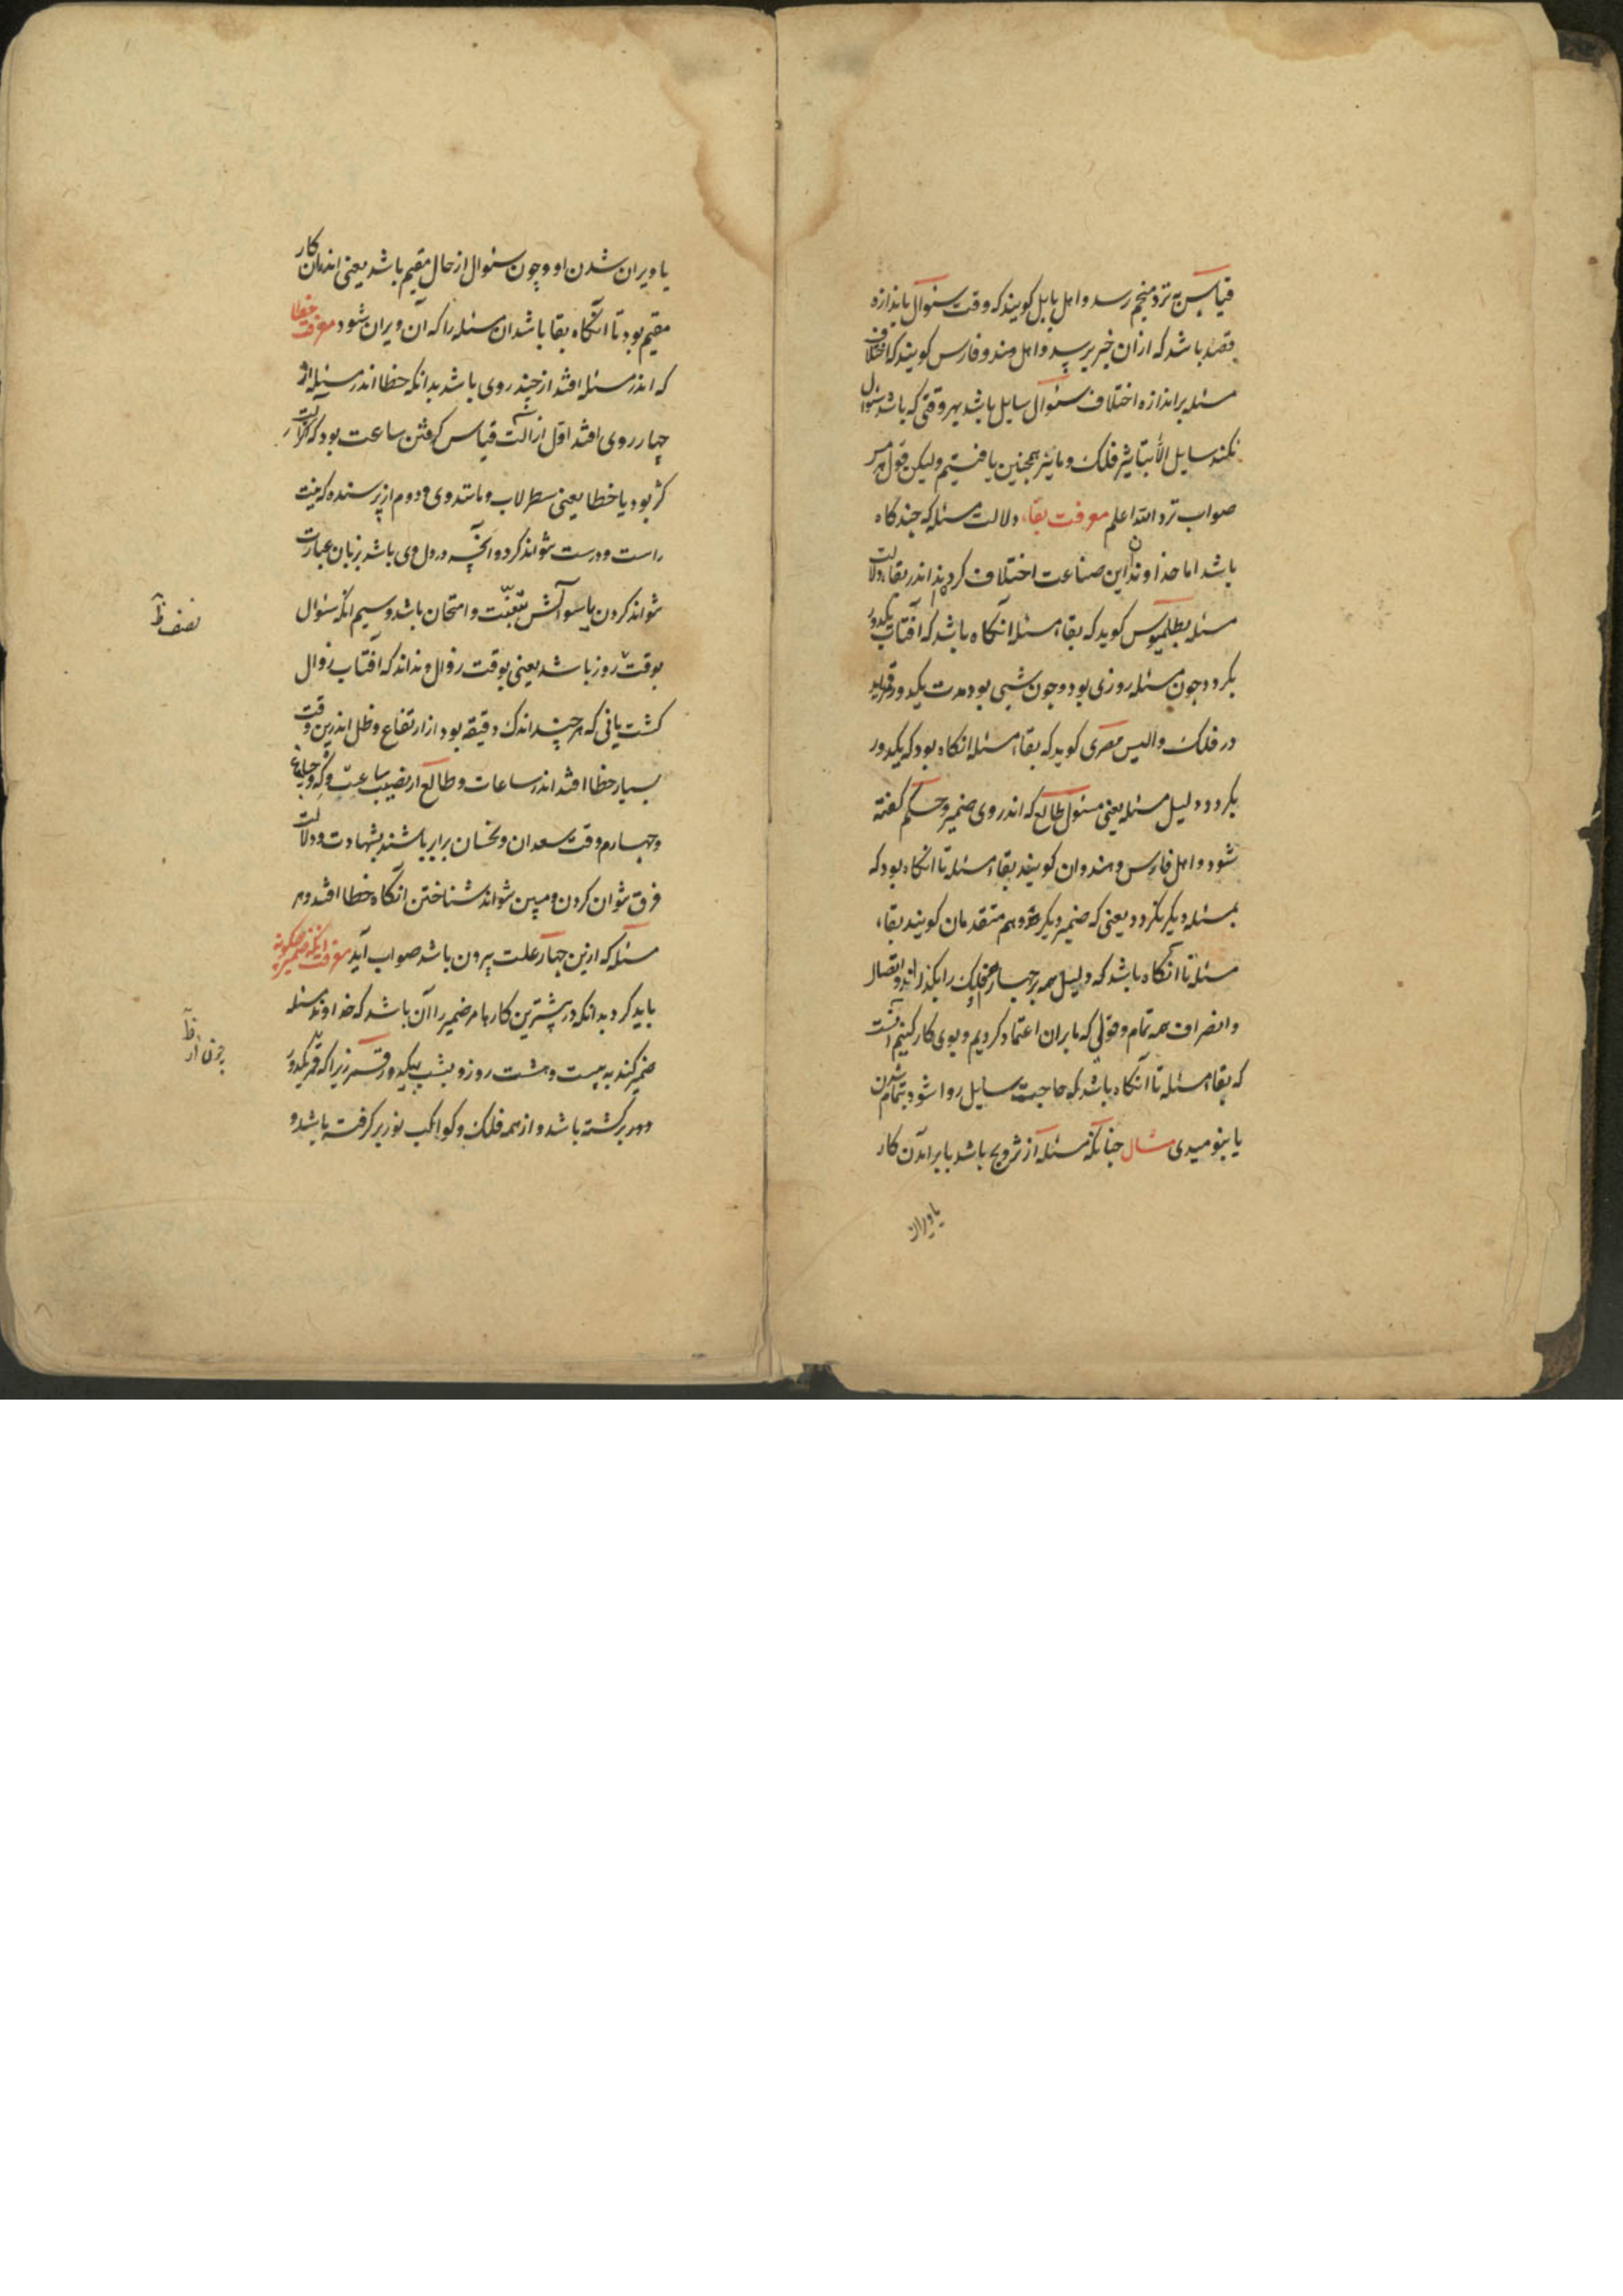 قیاس به نزد منجم رسد و اهل بابل کویند که وقت سئوال باندازه
قصد باشد که ازان خبر پرسد و اهل هند و فارس کویند که اختلاف
مسئله بر اندازه اختلاف سئوال سایل باشد بهر وقتی که باشد سئوال
نکند سایل الا بتاثیر فلک و ما نیز همچنین یافتیم ولیکن قول هرمس
صواب تر و الله اعلم معرفت بقاء دلالت مسئله که چند کاه
باشد اما خداوندان این صناعت اختلاف کردند اندر بقاء دلالت
مسئله بطلمیوس کوید که بقاء مسئله آنکاه باشد که آفتاب یکدور
بکردد چون مسئله روزی بود و چون شبی بود مدت یکدور قمر
در فلک و الیس مصری کوید که بقاء مسئله آنکاه بود که یکدور
بکردد دلیل مسئله یعنی مسئول طالع که اندر وی ضمیر و حکم کفته
شود و اهل فارس و هندوان کویند بقاء مسئله تا آنکاه بود که
بمسئله دیکر نکردد یعنی که ضمیر دیکر و هم متقدمان کویند بقاء
مسئله تا آنکاه باشد که دلیل همه بر چهار فلک را بکذراند و اتصال
و انصراف همه تمام و قولی که ما بران اعتماد کردیم و بوی کار کنیم آنست
که بقاء مسئله تا آنکاه باشد که حاجت سایل روا شود بتمام شدن
یا بنومیدی مثال چنانکه مسئله از تزویج باشد یا برآمدن کار
یا ویران
یا ویران شدن او و چون سئوال از حال مقیم باشد یعنی اندران کار
مقیم بود تا آنکاه بقا باشد ان مسئله را که آن ویران شود معرفت خطا
که اندر مسئله افتد از چند روی باشد بدانکه خطا اندر مسئله از
چهار روی افتد اول از آلت قیاس کرفتن ساعت بود که آلت
کژ بود یا خطا یعنی سطرلاب و مانند وی و دوم از پرسنده که نیت
راست و درست نتواند کرد و آنچه در دل وی باشد بزبان عبارت
نتواند کردن یا سوآلش تعنت و امتحان باشد و سیم آنکه سئوال
بوقت روز باشد یعنی بوقت زوال و نداند که آفتاب زوال
کشت یا نی که هرچند اندک دقیقه بود از ارتفاع و ظل اندرین وقت
بسیار خطا افتد اندر ساعات و طالع
و چهارم وقت سعدان و نحسان برابر باشند بشهادت و دلالت
فرق نتوان کردن و مبین نتواند شناختن آنکاه خطا افتد و هر
مسئله که ازین چهار علت بیرون باشد صواب آید معرفت آنکه ضمیر چکونه
باید کرد بدانکه در بیشترین کارها مر ضمیر را آن باشد که خداوند مسئله
ضمیر کند به بیست و هشت روز و بشب یکدور قمر زیرا که قمر یکدور
دور برکشته باشد و از همه فلک و کواکب نور برکرفته باشد و
نصف ظ